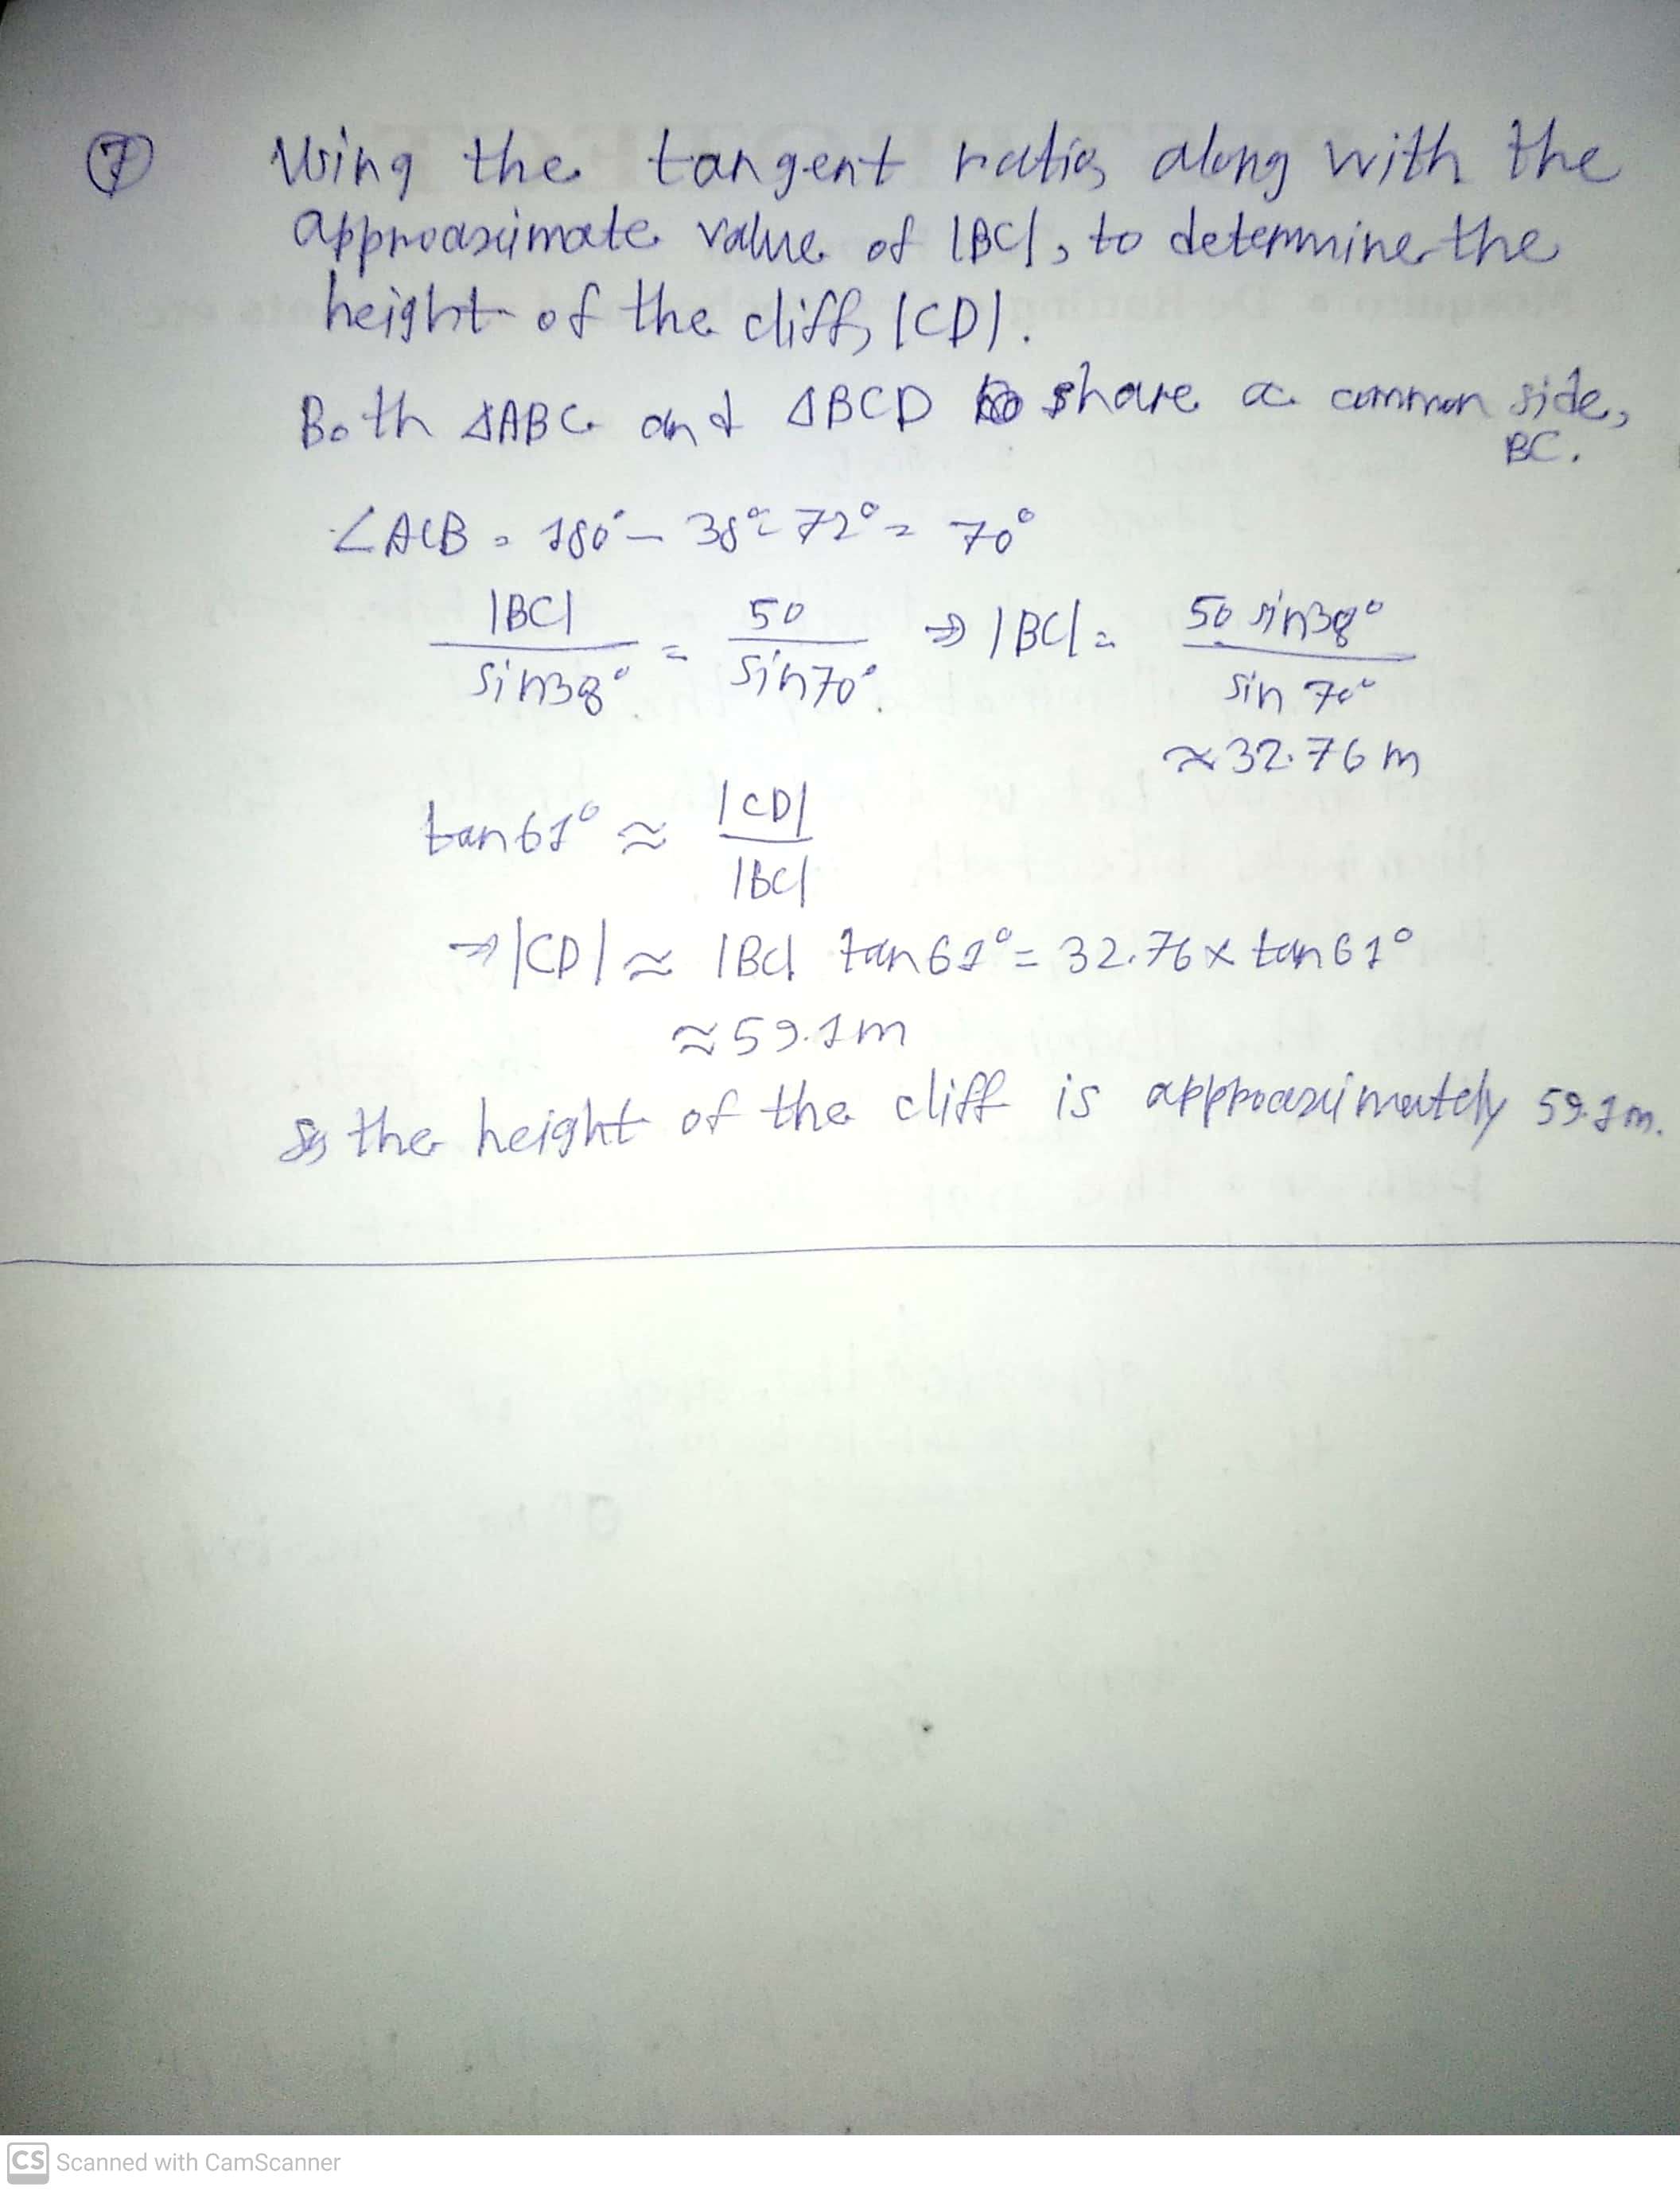 ⑦ Using the tangent ratio, along with the
approximate value of |BC|, to determine the
height of the cliff, |CD|.
Both ΔABC and ΔBCD share a common side,
BC.
∠ACB = 180° - 38° - 72° = 70°
|BC| / sin38° = 50 / sin70° ⇒ |BC| = 50 sin38° / sin 70°
≈ 32.76 m
tan61° ≈ |CD| / |BC|
⇒ |CD| ≈ |BC| tan61° = 32.76 × tan61°
≈ 59.1m
So the height of the cliff is approximately 59.1m.
CS Scanned with CamScanner